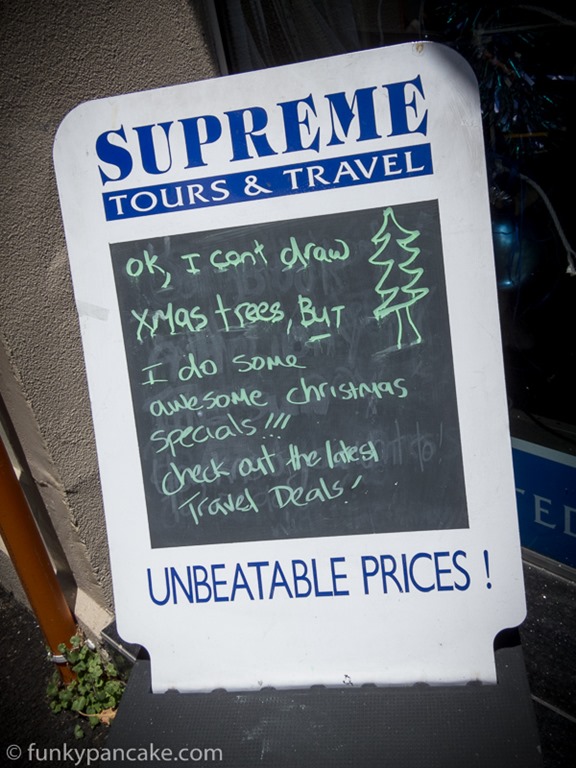 SUPREME
TOURS & TRAVEL
OK, I can't draw
Xmas trees, BUT
I do some
awesome christmas
specials!!!
check out the latest
Travel Deals!
UNBEATABLE PRICES !
TED
© funkypancake.com